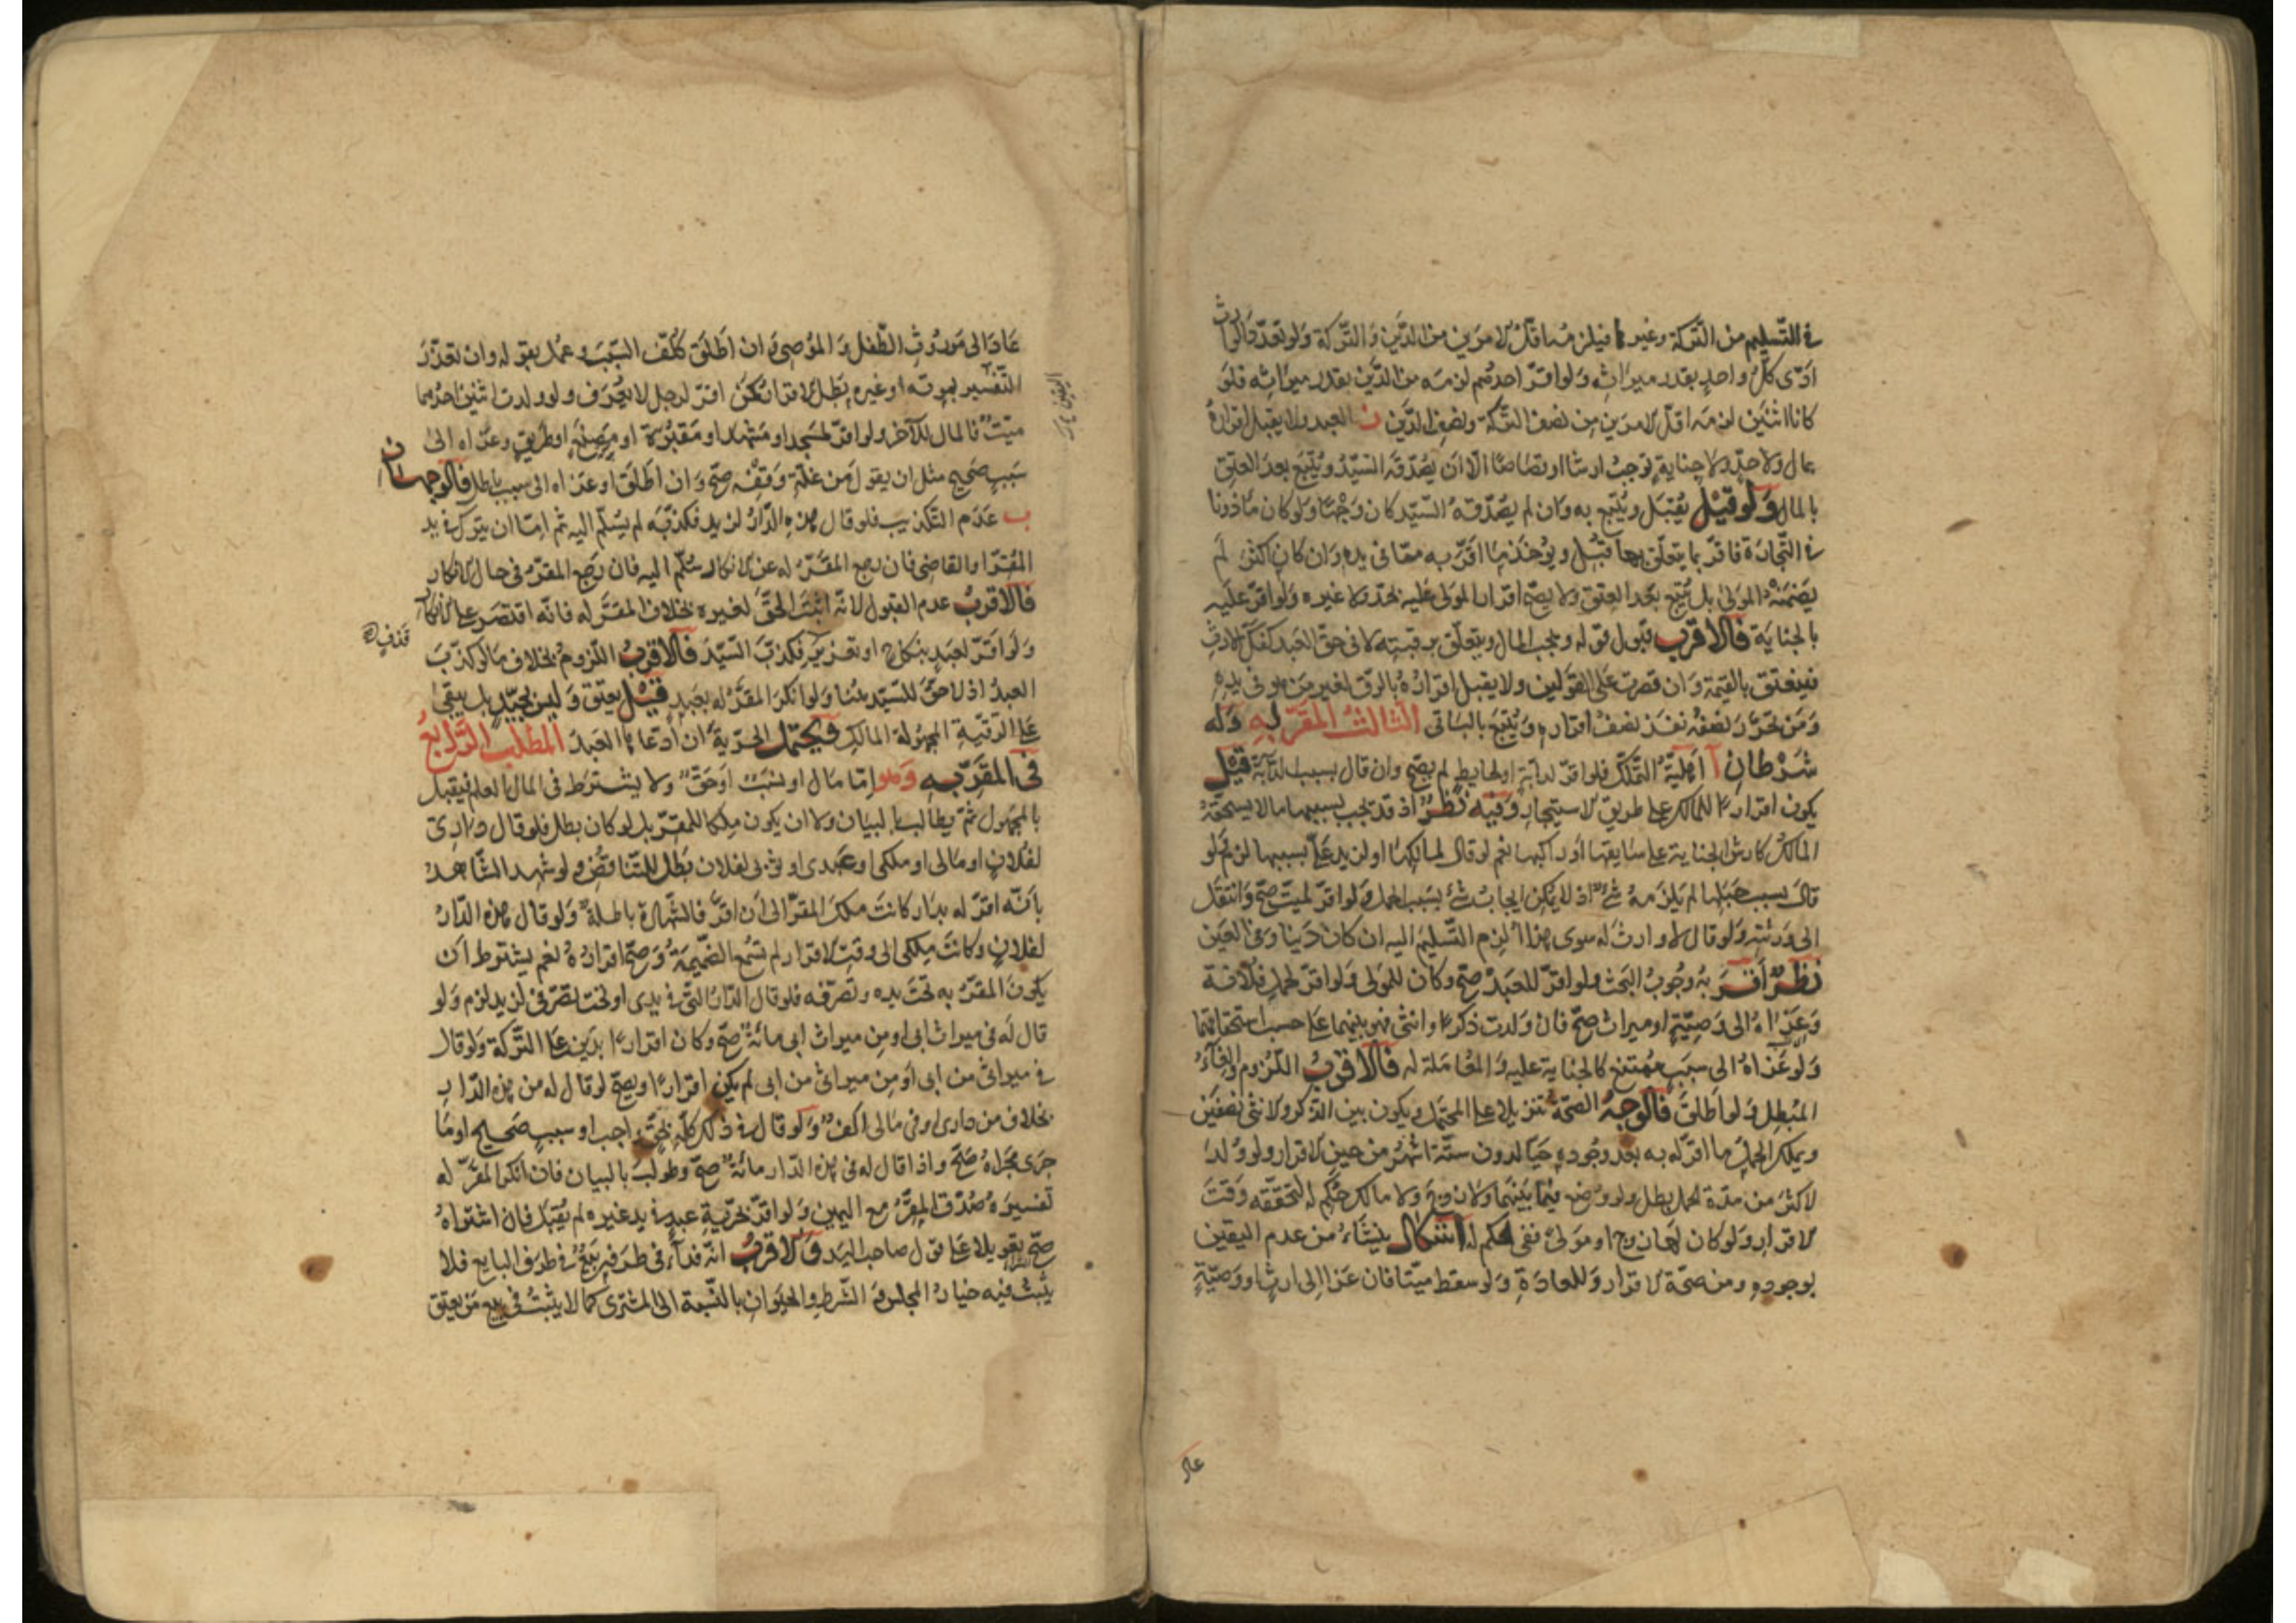 في التسليم من التركة وغيرها فيلزمه اقل الامرين من الدين والتركة ولو تعدد الوارث
ادى كل واحد بقدر ميراثه ولو اقر احدهم لزمه من الدين بقدر ميراثه فلو
كانا اثنين لزمه اقل الامرين من نصف التركة ونصف الدين العبد ولا يقبل اقراره
بمال ولا حد ولا جناية توجب ارشا او قصاصا الا ان يصدقه السيد ويتبع بعد العتق
بالمال ولو قيل يقبل ويتبع به وان لم يصدقه السيد كان وجها ولو كان ماذونا
في التجارة فاقر بما يتعلق بها قبل ويؤخذ ما اقر به مما في يده وان كان اكثر لم
يضمنه المولى بل يتبع بعد العتق ولا يصح اقرار المولى عليه بحد ولا غيره ولو اقر عليه
بالجناية فالاقرب قبول قوله ويجب المال ويتعلق برقبته لا في حق العبد كفك الارث
فينعتق بالقيمة وان قصرت على القولين ولا يقبل اقراره بالرق لغير من هو في يده
ومن تحرر نصفه نفذ نصف اقراره ويتبع بالباقي الثالث المقر له وله
شرطان آ اهلية التملك فلو اقر لدابة او لحايط لم يصح وان قال بسبب الدابة قيل
يكون اقرارا للمالك على طريق الاستيجار وفيه نظر اذ قد يجب بسببها ما لا يستحقه
المالك كارش الجناية على سايقها او راكبها نعم لو قال لمالكها او لزيد علي بسببها لزم ولو
قال بسبب حملها لم يلزمه شئ اذ لا يمكن ايجاب شئ بسبب الحمل ولو اقر لميت صح وانتقل
الى ورثته ولو قال لا وارث له سوى هذا الزم التسليم اليه ان كان دينا وفي العين
نظر اقربه وجوب البحث ولو اقر للعبد صح وكان للمولى ولو اقر لحمل فلانة
وعزاه الى وصية او ميراث صح فان ولدت ذكرا وانثى فهو بينهما على حسب استحقاقهما
ولو عزاه الى سبب ممتنع كالجناية عليه والمعاملة له فالاقرب اللزوم والغاء
المبطل ولو اطلق فالوجه الصحة تنزيلا على المحتمل ويكون بين الذكر والانثى نصفين
ويملك الحمل ما اقر له به بعد وجوده حيا لدون ستة اشهر من حين الاقرار ولو ولد
لاكثر من مدة الحمل بطل ولو وضع فيما بينهما ولا زوج ولا مالك حكم له لتحققه وقت
الاقرار ولو كان لها زوج او مولى ففي الحكم له اشكال ينشاء من عدم اليقين
بوجوده ومن صحة الاقرار وللعادة ولو سقط ميتا فان عزا الى ارث او وصية
عاد
عاد الى مورث الطفل والموصي وان اطلق كلف السبب وعمل بقوله وان تعذر
التفسير بموته او غيره بطل الاقرار كمن اقر لرجل لا يعرف ولو ولدت اثنين احدهما
ميت فالمال للآخر ولو اقر لمسجد او مشهد او مقبرة او مصنع او طريق وعزاه الى
سبب صحيح مثل ان يقول من غلة وقفه صح وان اطلق او عزاه الى سبب باطل فالوجهان
ب عدم التكذيب فلو قال هذه الدار لزيد فكذبه لم يسلم اليه ثم اما ان يترك في يد
المقر او القاضي فان رجع المقر له عن الانكار سلم اليه فان رجع المقر في حال الانكار
فالاقرب عدم القبول لانه اثبت الحق لغيره بخلاف المقر له فانه اقتصر على الانكار
ولو اقر لعبد بنكاح او تعزير فكذب السيد فالاقرب اللزوم بخلاف ما لو كذب
قذف
العبد اذ لا حق للسيد هنا ولو انكر المقر له بعبد قيل يعتق وليس بجيد بل يبقى
على الرقية المجهولة المالك ويحتمل الحرية ان ادعاها العبد المطلب الرابع
في المقر به وهو اما مال او نسب او حق ولا يشترط في المال العلم فيقبل
بالمجهول ثم يطالب بالبيان ولا ان يكون ملكا للمقر بل لو كان بطل فلو قال داري
لفلان او مالي او ملكي او عبدي او ثوبي لفلان بطل للتناقض ولو شهد الشاهد
بانه اقر له بدار كانت ملك المقر الى ان اقر فالشهادة باطلة ولو قال هذه الدار
لفلان وكانت ملكي الى وقت الاقرار لم تسمع الضميمة وصح اقراره نعم يشترط ان
يكون المقر به تحت يده وتصرفه فلو قال الدار التي في يدي او تحت تصرفي لزيد لزم ولو
قال له في ميراث ابي او من ميراث ابي مائة صح وكان اقرارا بدين على التركة ولو قال
في ميراثي من ابي او من ميراثي من ابي لم يكن اقرارا ويصح لو قال له من هذه الدار
بخلاف من داري او في مالي الف ولو قال في ذلك كله بحق واجب او سبب صحيح او ما
جرى مجراه صح واذا قال له في هذه الدار مائة صح وطولب بالبيان فان انكر المقر له
تفسيره صدق المقر مع اليمين ولو اقر بحرية عبد في يد غيره لم يقبل فان اشتراه
صح تعويلا على قول صاحب اليد والاقرب انه فداء في طرفه بيع في طرف البايع فلا
يثبت فيه خيار المجلس والشرط والحيوان بالنسبة الى المشتري كما لا يثبت في بيع من يعتق